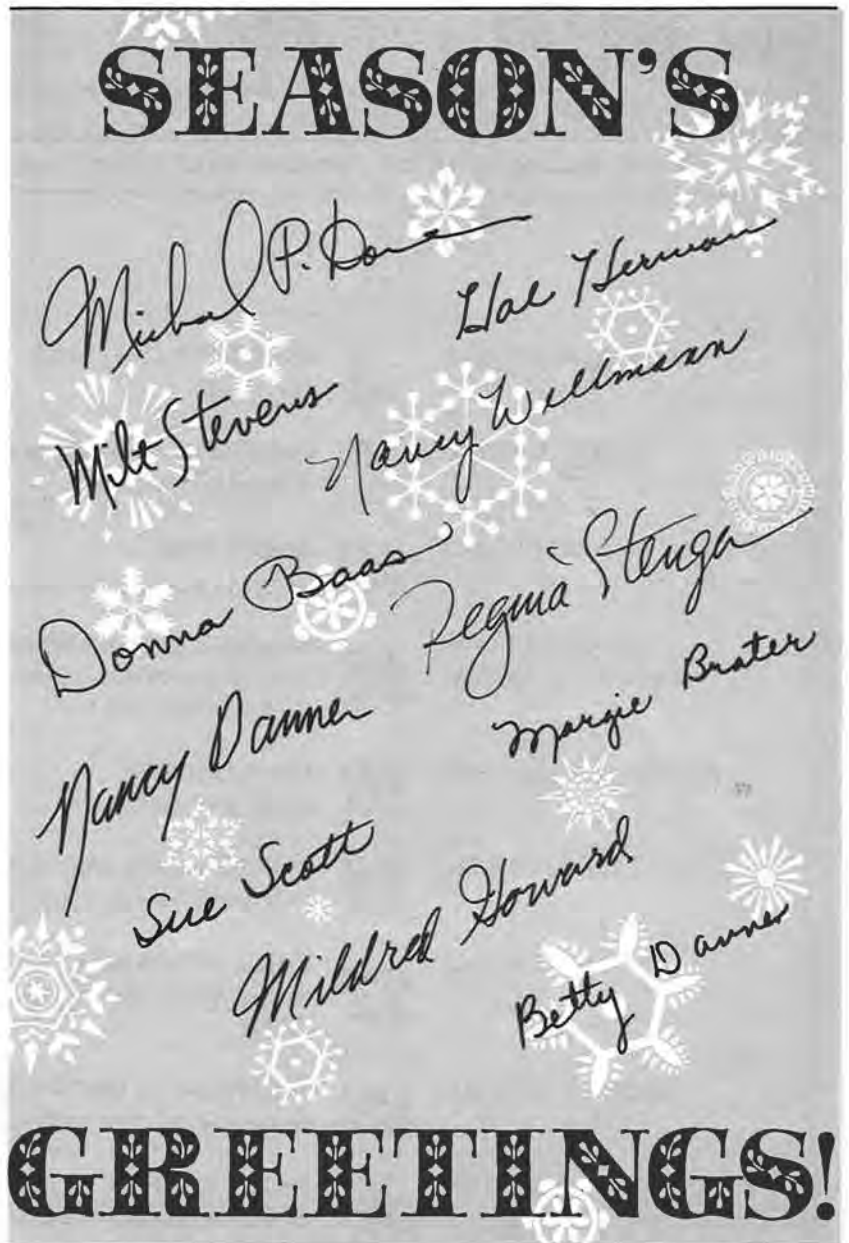 SEASON'S
Michael P.
Hal Herman
Milt Stevens
Nancy Wellmann
Donna Baas
Regina Stenga
Nancy Danner
Margie Brater
Sue Scott
Mildred Howard
Betty Danner
GREETINGS!